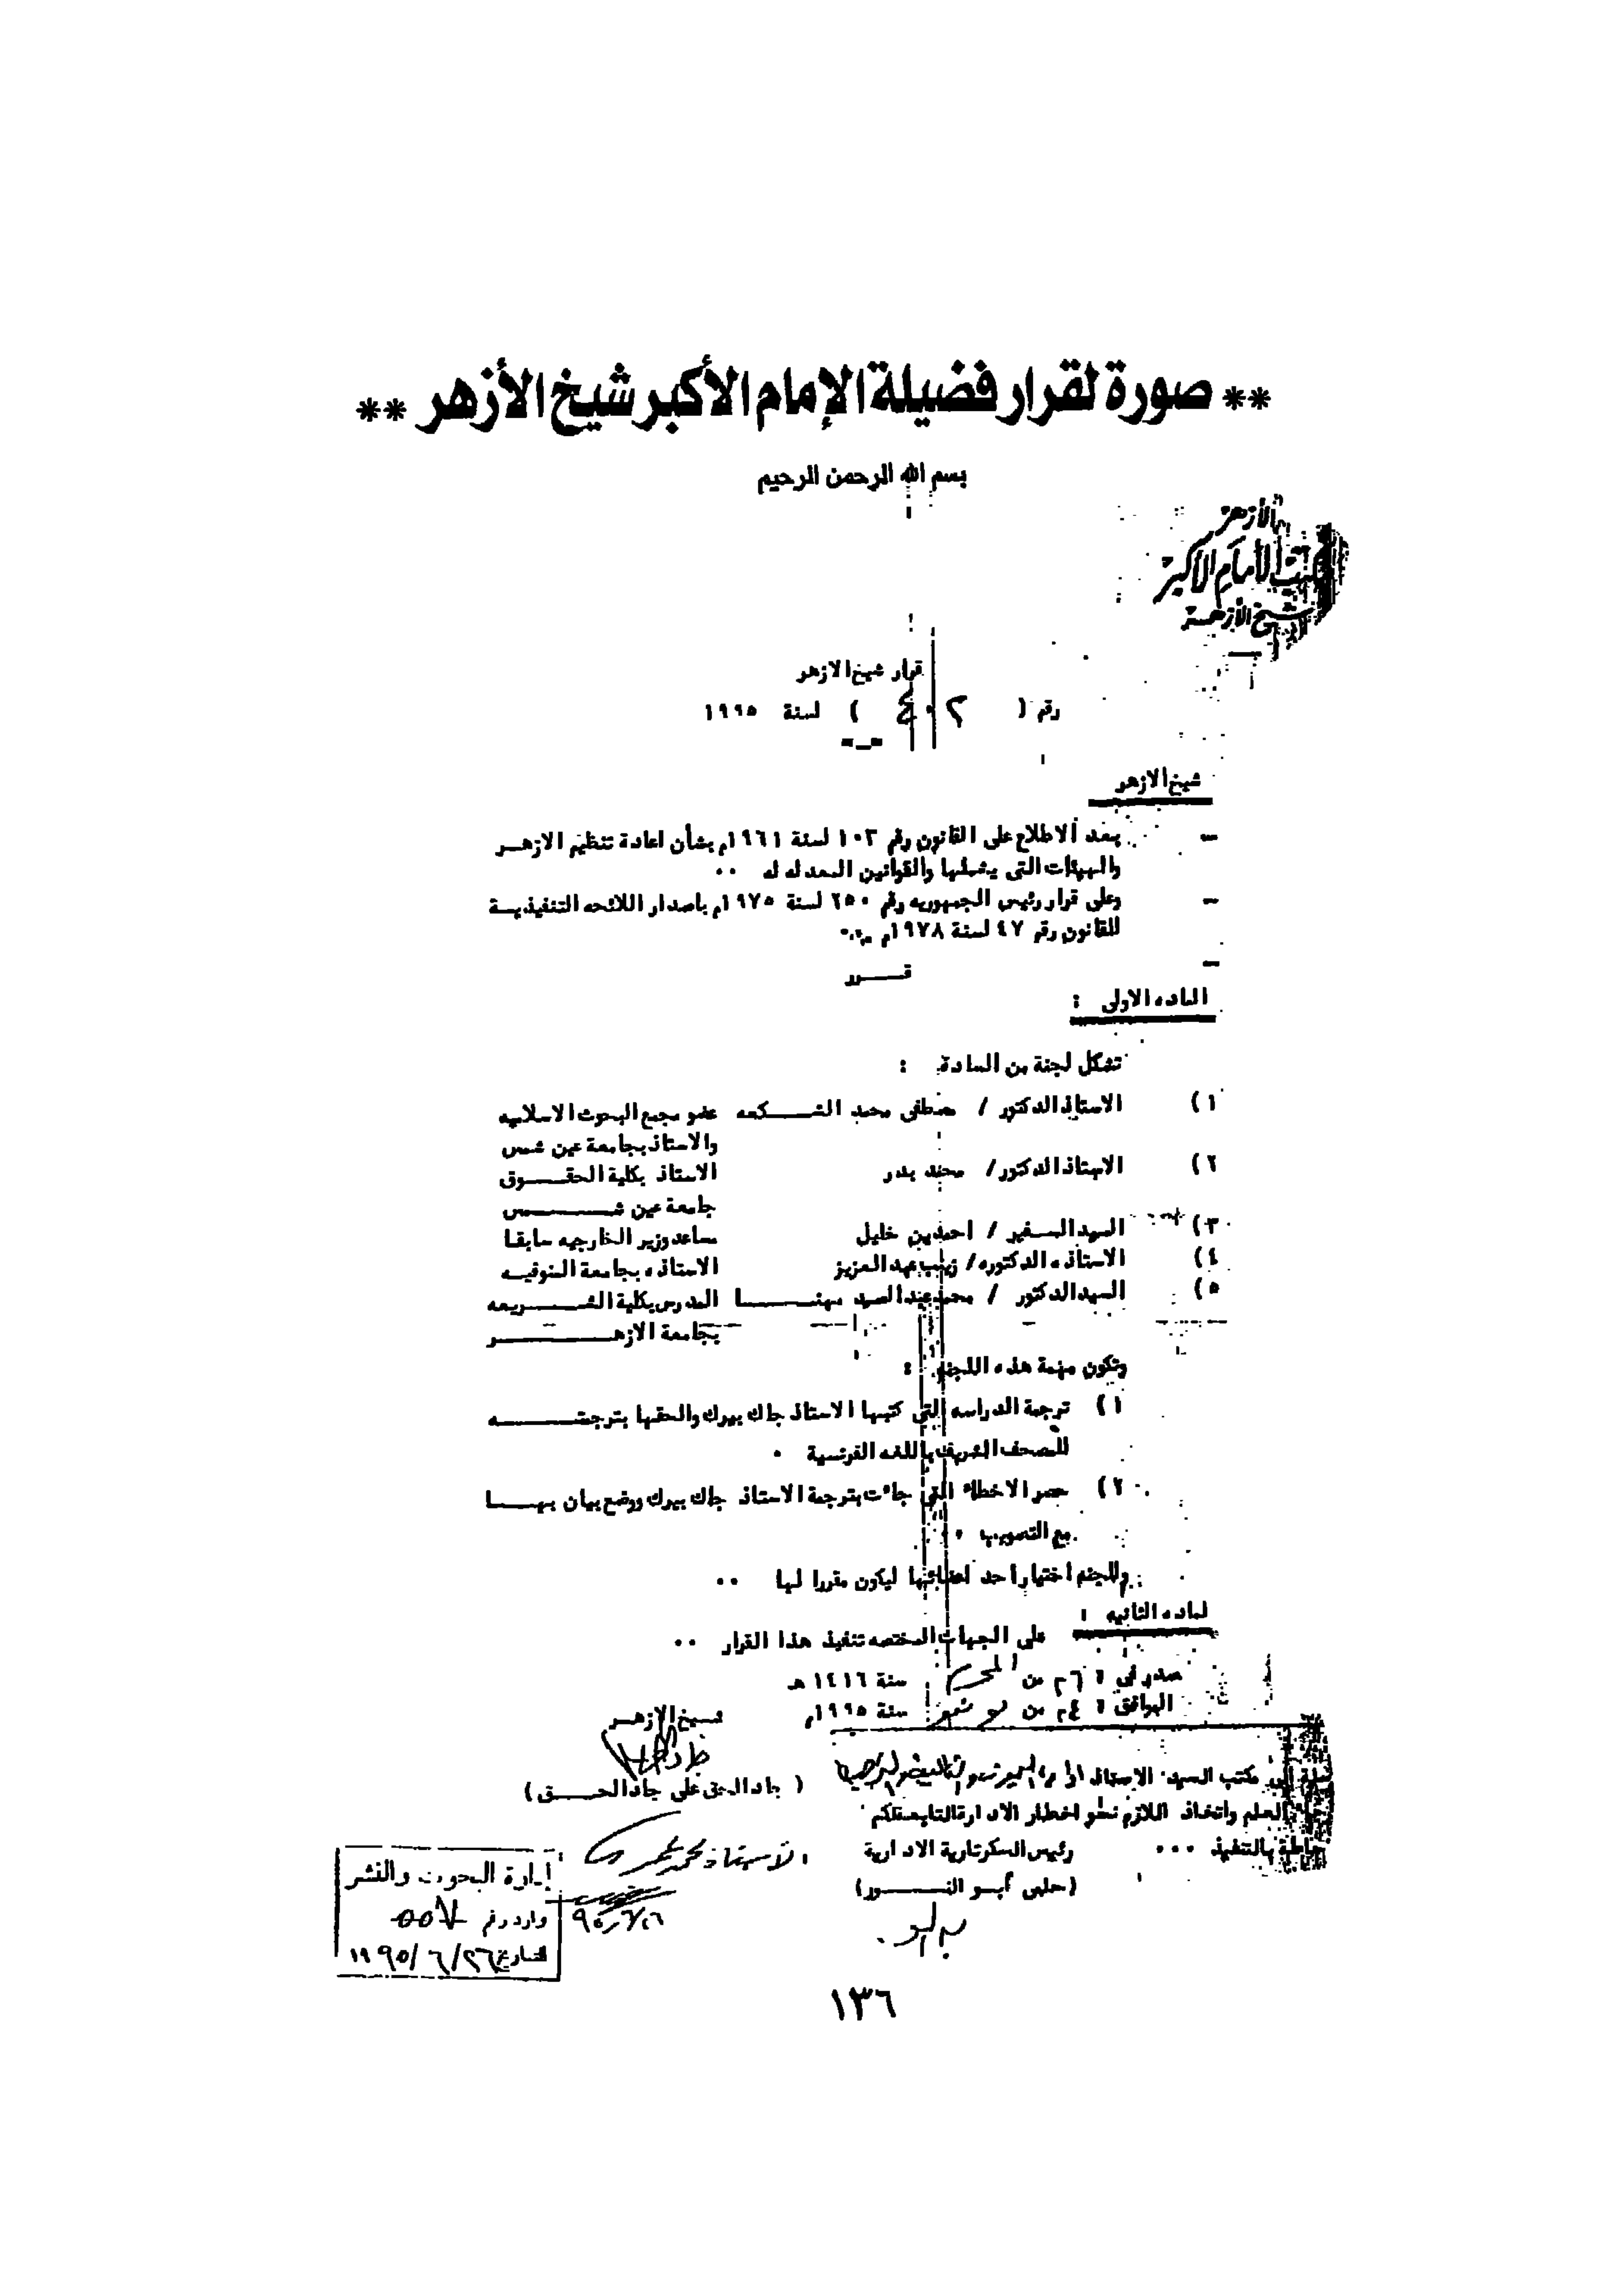 ** صورة لقرار فضيلة الإمام الأكبر شيخ الأزهر **
بسم الله الرحمن الرحيم
الأزهر
مكتب الأمام الأكبر
شيخ الأزهر
قرار شيخ الازهر
رقم ( ٤٠٢ ) لسنة ١٩٩٥
شيخ الازهر
– بعد الاطلاع على القانون رقم ١٠٣ لسنة ١٩٦١م بشأن اعادة تنظيم الازهــر
والهيئات التى يشملها والقوانين المعدله له ٠٠
– وعلى قرار رئيس الجمهوريه رقم ٢٥٠ لسنة ١٩٧٥م باصدار اللائحه التنفيذيــة
للقانون رقم ٤٧ لسنة ١٩٧٨م ٠٠
– قــــرر
الماده الاولى :
تشكل لجنة من السادة :
١) الاستاذ الدكتور / مصطفى محمد الشــكعه عضو مجمع البحوث الاسلاميه
والاستاذ بجامعة عين شمس
٢) الاستاذ الدكتور / محمد بدر الاستاذ بكلية الحقــوق
جامعة عين شــــــس
٣) السيد السفير / احمد بن خليل مساعد وزير الخارجيه سابقا
٤) الاستاذه الدكتوره / زينب عبد العزيز الاستاذه بجامعة المنوفيــه
٥) السيد الدكتور / محمد عبد السيد مهنــــا المدرس بكلية الشــريعه
بجامعة الازهــــــر
وتكون مهمة هذه اللجنه :
١) ترجمة الدراسه التى كتبها الاستاذ جاك بيرك والحقها بترجمتــــه
للمصحف الشريف باللغه الفرنسية ٠
٢) حصر الاخطاء التى جاءت بترجمة الاستاذ جاك بيرك ووضع بيان بهــا
مع التصويب ٠٠
وللجنه اختيار أحد اعضائها ليكون مقررا لها ٠٠
لماده الثانيه :
على الجهات المختصه تنفيذ هذا القرار ٠٠
صدر فى : ٦ من المحرم سنة ١٤١٦ هـ
الموافق : ٤ من يونيو سنة ١٩٩٥م
شــيخ الازهــر
( جاد الحق على جاد الحــــق )
مكتب السيد الاستاذ
العلم واتخاذ اللازم نحو اخطار الادارة التابعة لكم
بالتنفيذ ٠٠٠ رئيس السكرتارية الادارية
(حلمى أبــو النــــور)
الأستاذ محمد
٩٥/٦/٢٦
إدارة البحوث والنشر
وارد رقم ٥٥٧
التاريخ ٢٦/٦/١٩٩٥
١٣٦